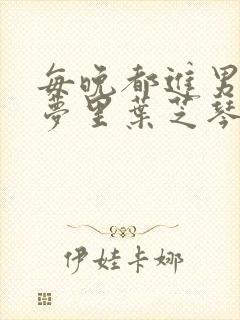 每晚都进男
梦里叶芝琴
伊娃卡娜